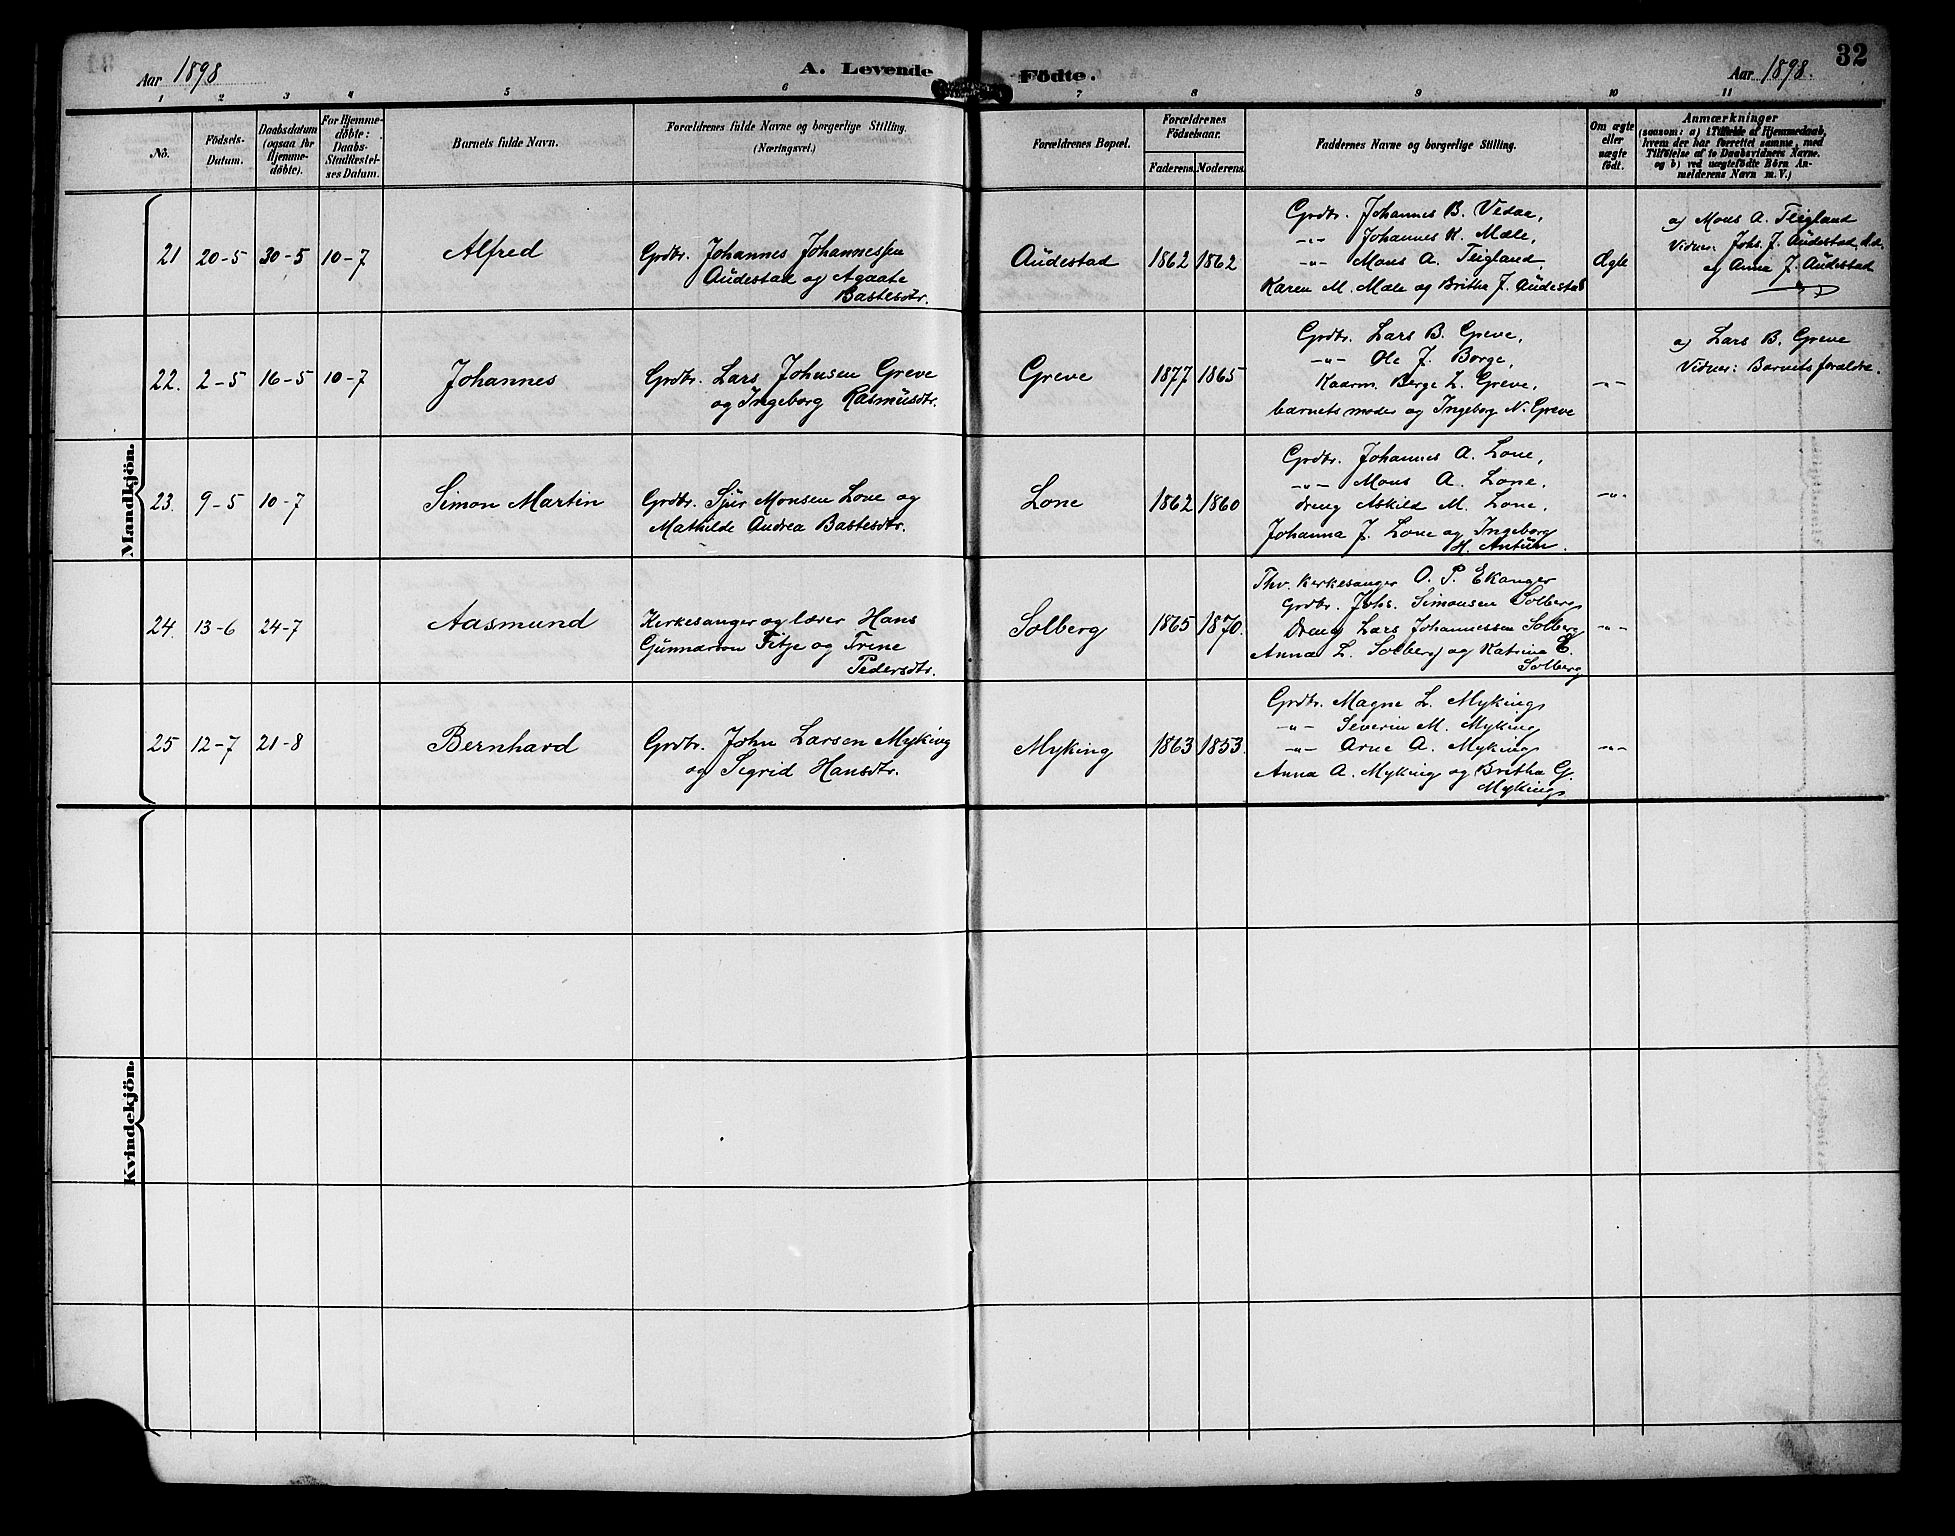 Aar 1898
A. Levende Födte.
Aar 1898.
32
1 2 3 4 5 6 7 8 9 10 11
No.
Födsels-
Datum.
Daabsdatum
(ogsaa for
Hjemme-
døbte).
For Hjemme-
døbte:
Daabs-
Stadfæstel-
ses Datum.
Barnets fulde Navn.
Forældrenes fulde Navne og borgerlige Stilling.
(Næringsvei.)
Forældrenes Bopæl.
Forældrenes
Födselsaar.
Faderens. Moderens.
Faddernes Navne og borgerlige Stilling.
Om ægte
eller
uægte
født.
Anmærkninger
(saasom: a) i Tilfælde af Hjemmedaab,
hvem der har forrettet samme, med
Tilföielse af to Daabsvidners Navne.
og b) ved uægtefödte Börn An-
melderens Navn m. V.)
Mandkjön.
21 20-5 30-5 10-7 Alfred
Grdbr. Johannes Johannessen
Audestad og Agaate
Bastesdtr.
Audestad 1862 1862
Grdbr. Johannes B. Vedaa,
-"- Johannes K. Mæle,
-"- Mons A. Teigland,
Karen M. Mæle og Britha J. Audestad
Ægte
a) Mons A. Teigland
Vidner: Johs. J. Audestad
og Anna J. Audestad
22. 2-5 16-5 10-7 Johannes
Grdbr. Lars Johnsen Greve
og Ingeborg Rasmusdtr.
Greve 1877 1865
Grdbr. Lars B. Greve,
-"- Ole J. Borge,
Kaarm. Berge L. Greve,
barnets moder og Ingeborg N. Greve
-"-
a) Lars B. Greve
Vidner: Barnets forældre.
23. 9-5 10-7 Simon Martin
Grdbr. Sjur Monsen Lone og
Mathilde Andrea Bastesdtr.
Lone 1862 1860
Grdbr. Johannes A. Lone,
-"- Mons A. Lone,
dreng Askild M. Lone,
Johanna J. Lone og Ingeborg
H. Antun.
-"-
24. 13-6 24-7 Aasmund
Kirkesanger og lærer Hans
Gunnarson Fitje og Trine
Pedersdtr.
Solberg 1865 1870.
Fhv. kirkesanger O. P. Ekanger
Grdbr. Johs. Simonsen Solberg
Dreng Lars Johannessen Solberg
Anna L. Solberg og Katrine E.
Solberg
-"-
25 12-7 21-8 Bernhard
Grdbr. John Larsen Myking
og Sigrid Hansdtr.
Myking 1863 1853.
Grdbr. Magne L. Myking
-"- Severin M. Myking
-"- Arne A. Myking
Anna A. Myking og Britha G.
Myking
-"-
Kvindekjön.